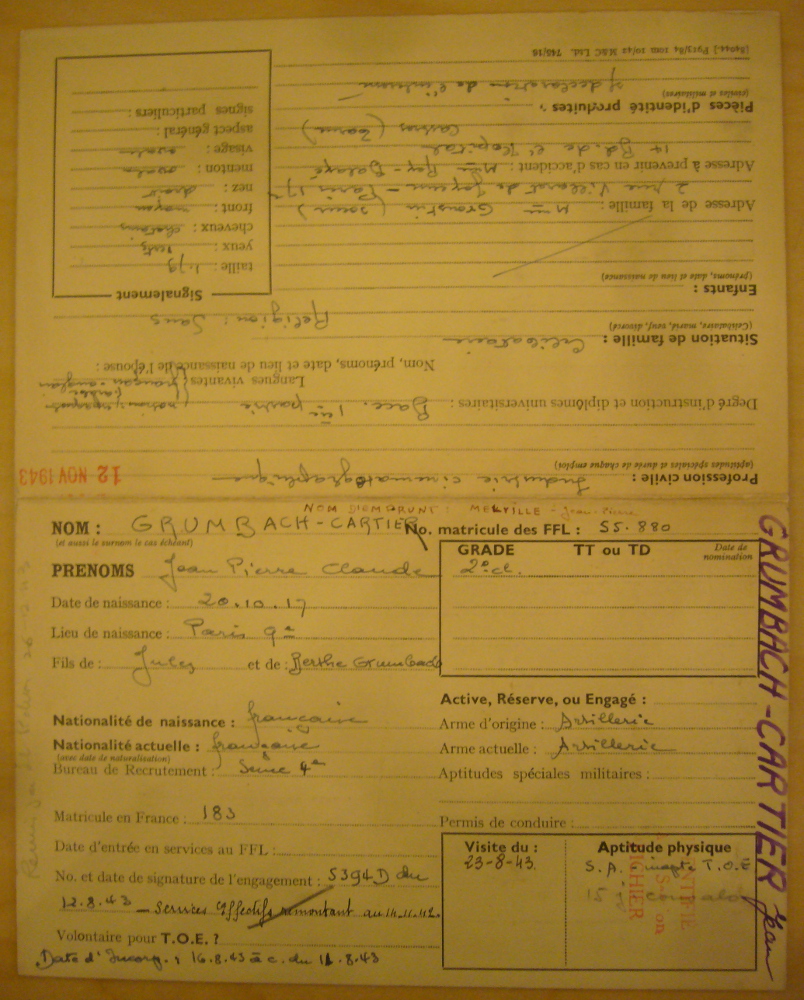 NOM D'EMPRUNT : MELVILLE - Jean-Pierre
NOM : GRUMBACH-CARTIER
(et aussi le surnom le cas échéant)
No. matricule des FFL : 55.880
PRENOMS Jean Pierre Claude
Date de naissance : 20.10.17
Lieu de naissance : Paris 9e
Fils de : Jules et de : Berthe Grumbach
GRADE TT ou TD Date de nomination
2e cl.
Nationalité de naissance : française
Nationalité actuelle : française
(avec date de naturalisation)
Bureau de Recrutement : Seine 4e
Matricule en France : 183
Date d'entrée en services au FFL :
No. et date de signature de l'engagement : 5394 D du
12.8.43 — Services effectifs remontant au 14.11.42
Volontaire pour T.O.E. ?
Date d'Incorp. : 16.8.43 à c. du 11.8.43
Active, Réserve, ou Engagé :
Arme d'origine : Artillerie
Arme actuelle : Artillerie
Aptitudes spéciales militaires :
Permis de conduire :
Visite du :
23-8-43.
Aptitude physique
S. A. inapte T.O.E
15 j
GRUMBACH-CARTIER Jean
12 NOV 1943
Profession civile : Industrie cinématographique
(aptitudes spéciales et durée de chaque emploi)
Degré d'instruction et diplômes universitaires : Bacc. 1ère partie
Langues vivantes français - anglais
Nom, prénoms, date et lieu de naissance de l'épouse :
Situation de famille : Célibataire
(Célibataire, marié, veuf, divorcé)
Religion : Sans
Enfants :
(prénoms, date et lieu de naissance)
Adresse de la famille : Mme (soeur)
2 rue Villaret de Joyeuse - Paris 17e
Adresse à prévenir en cas d'accident : Mme
14 Bd. de l'Hôpital
Castres (Tarn)
Pièces d'identité produites :
(civiles et militaires)
s/ déclaration de l'intéressé
Signalement
taille : 1.79
yeux : verts
cheveux : chatains
front : moyen
nez : droit
menton : ovale
visage : ovale
aspect général :
signes particuliers :
[84044.] P913/84 10m 10/42 M&C Ltd. 745/16